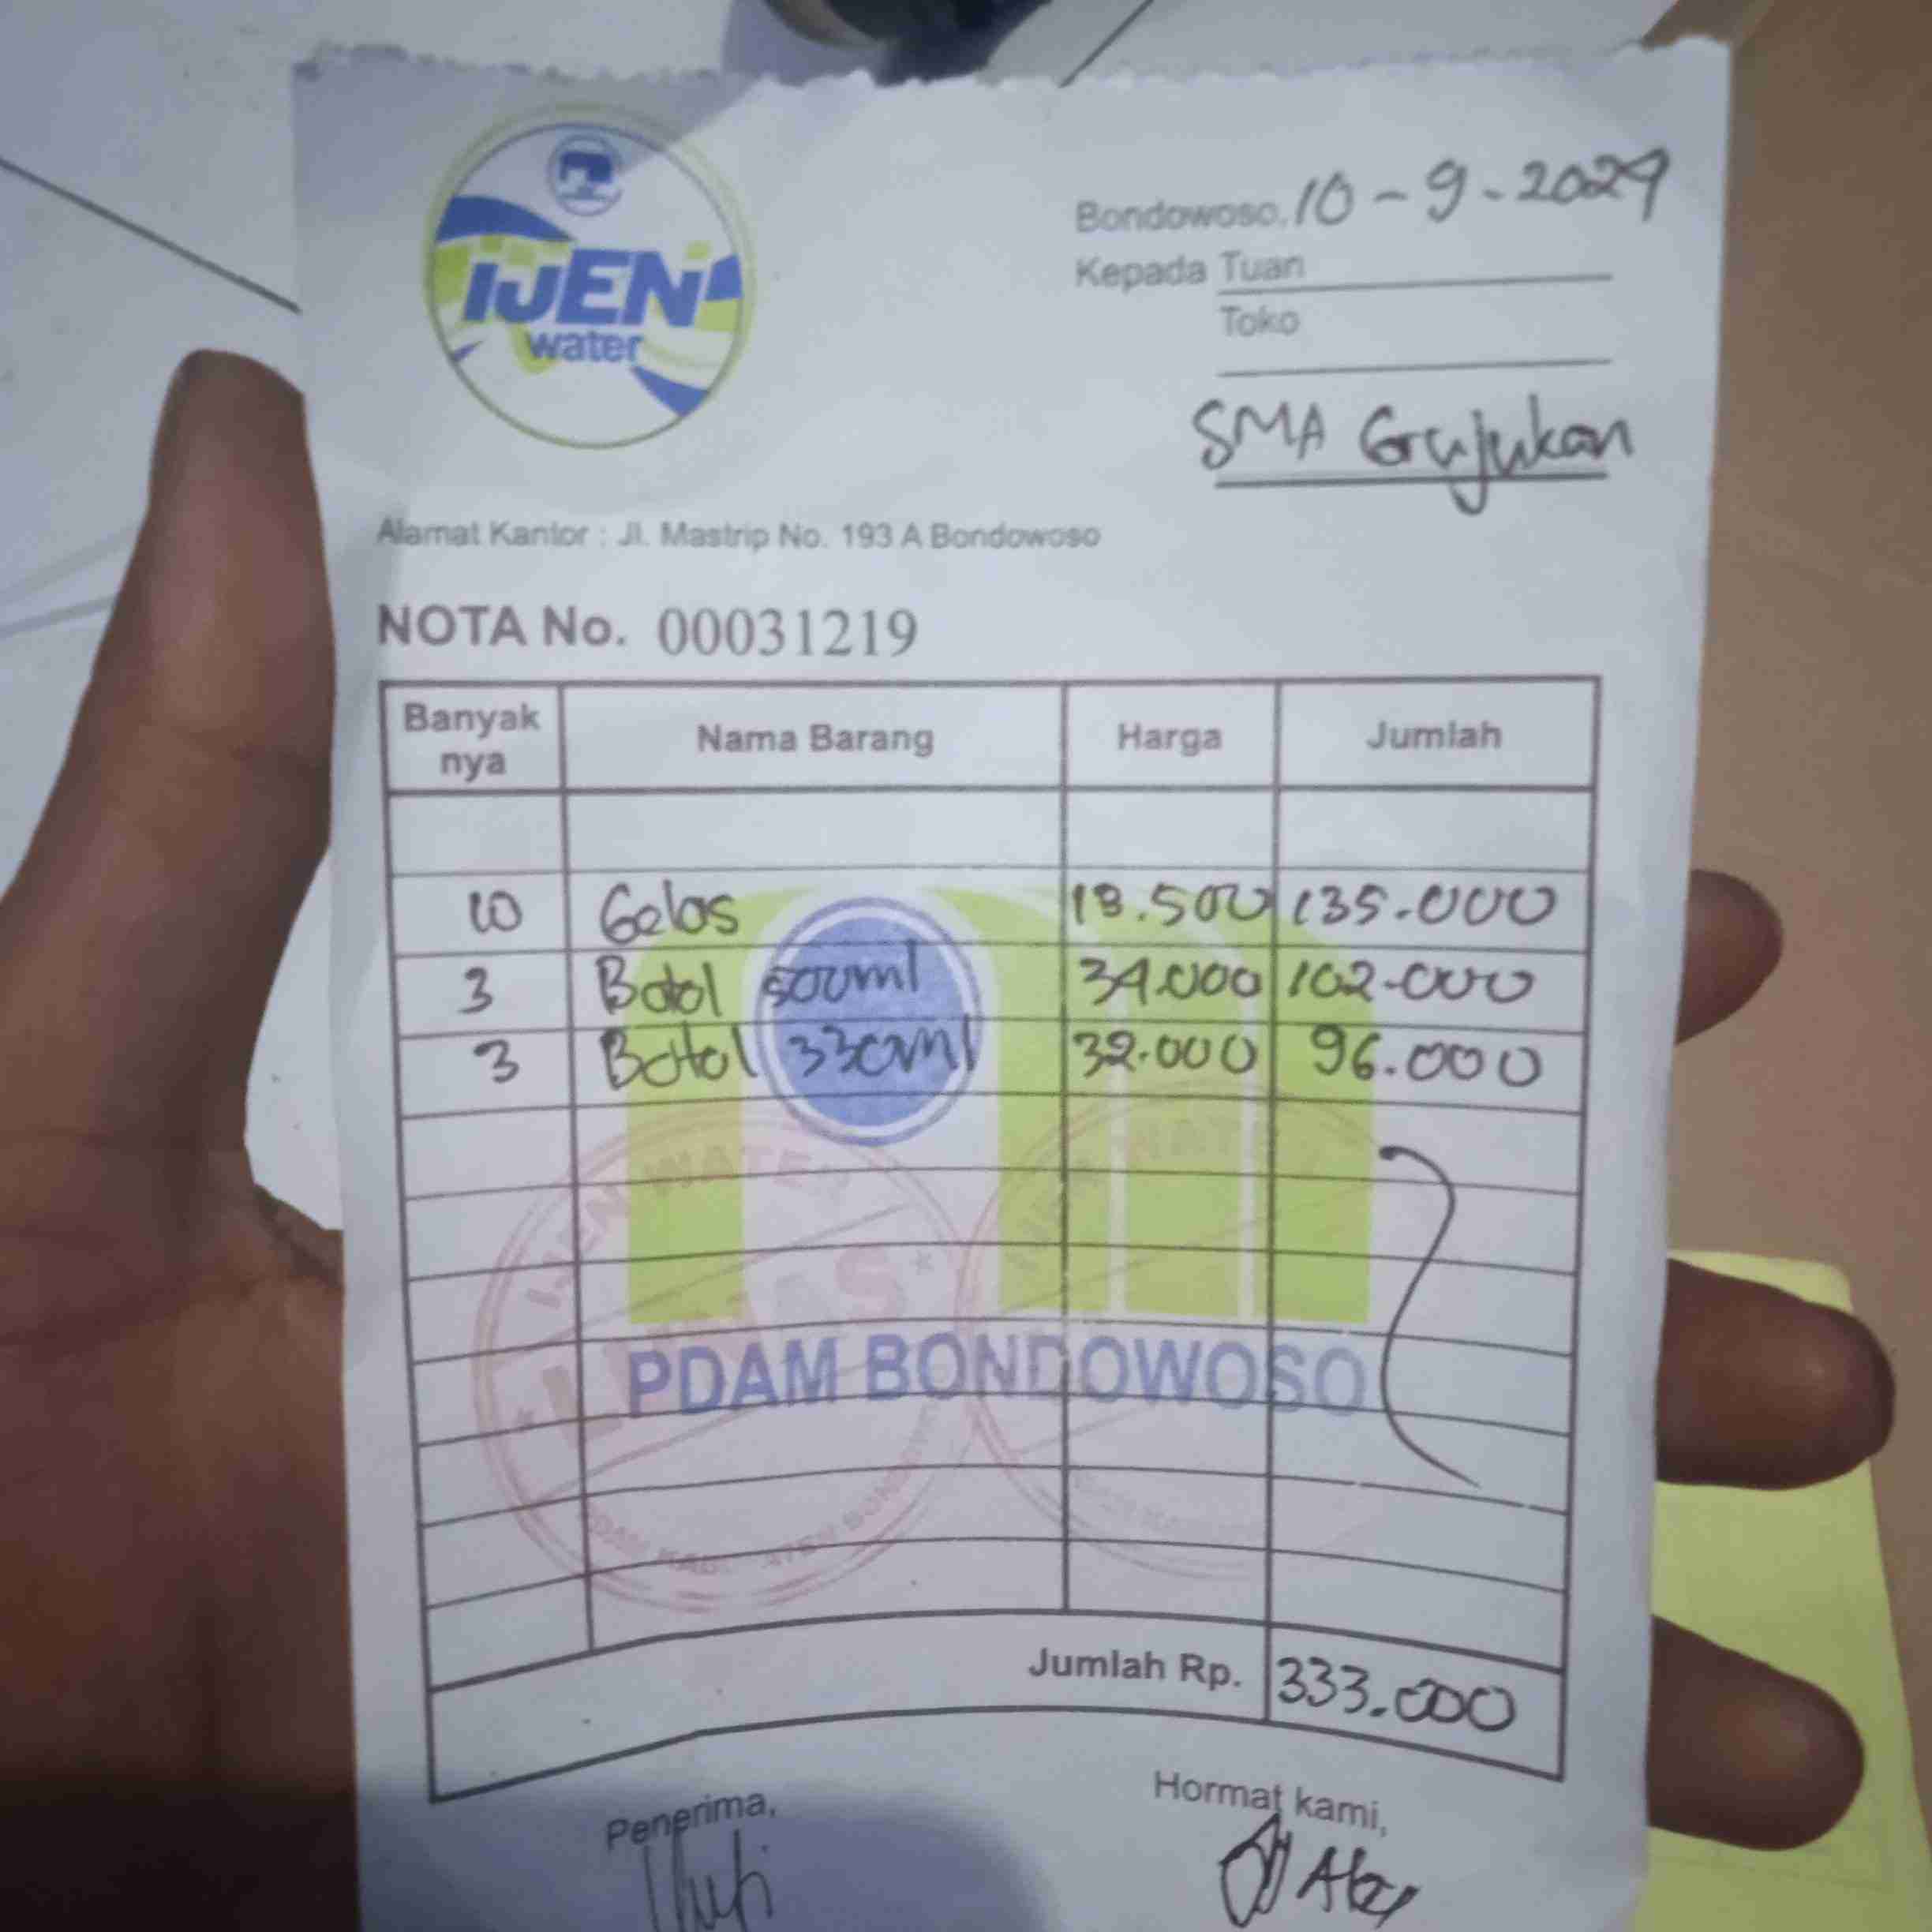 IJEN
water
Bondowoso, 10-9-2024
Kepada Tuan
Toko
SMA Grujukan
Alamat Kantor : Jl. Mastrip No. 193 A Bondowoso
NOTA No. 00031219
Banyak nya Nama Barang Harga Jumlah
10 Gelas 13.500 135.000
3 Botol 500ml 34.000 102.000
3 Botol 330ml 32.000 96.000
IJEN WATER
LUNAS
PDAM BONDOWOSO
Jumlah Rp. 333.000
Penerima,
Hormat kami,